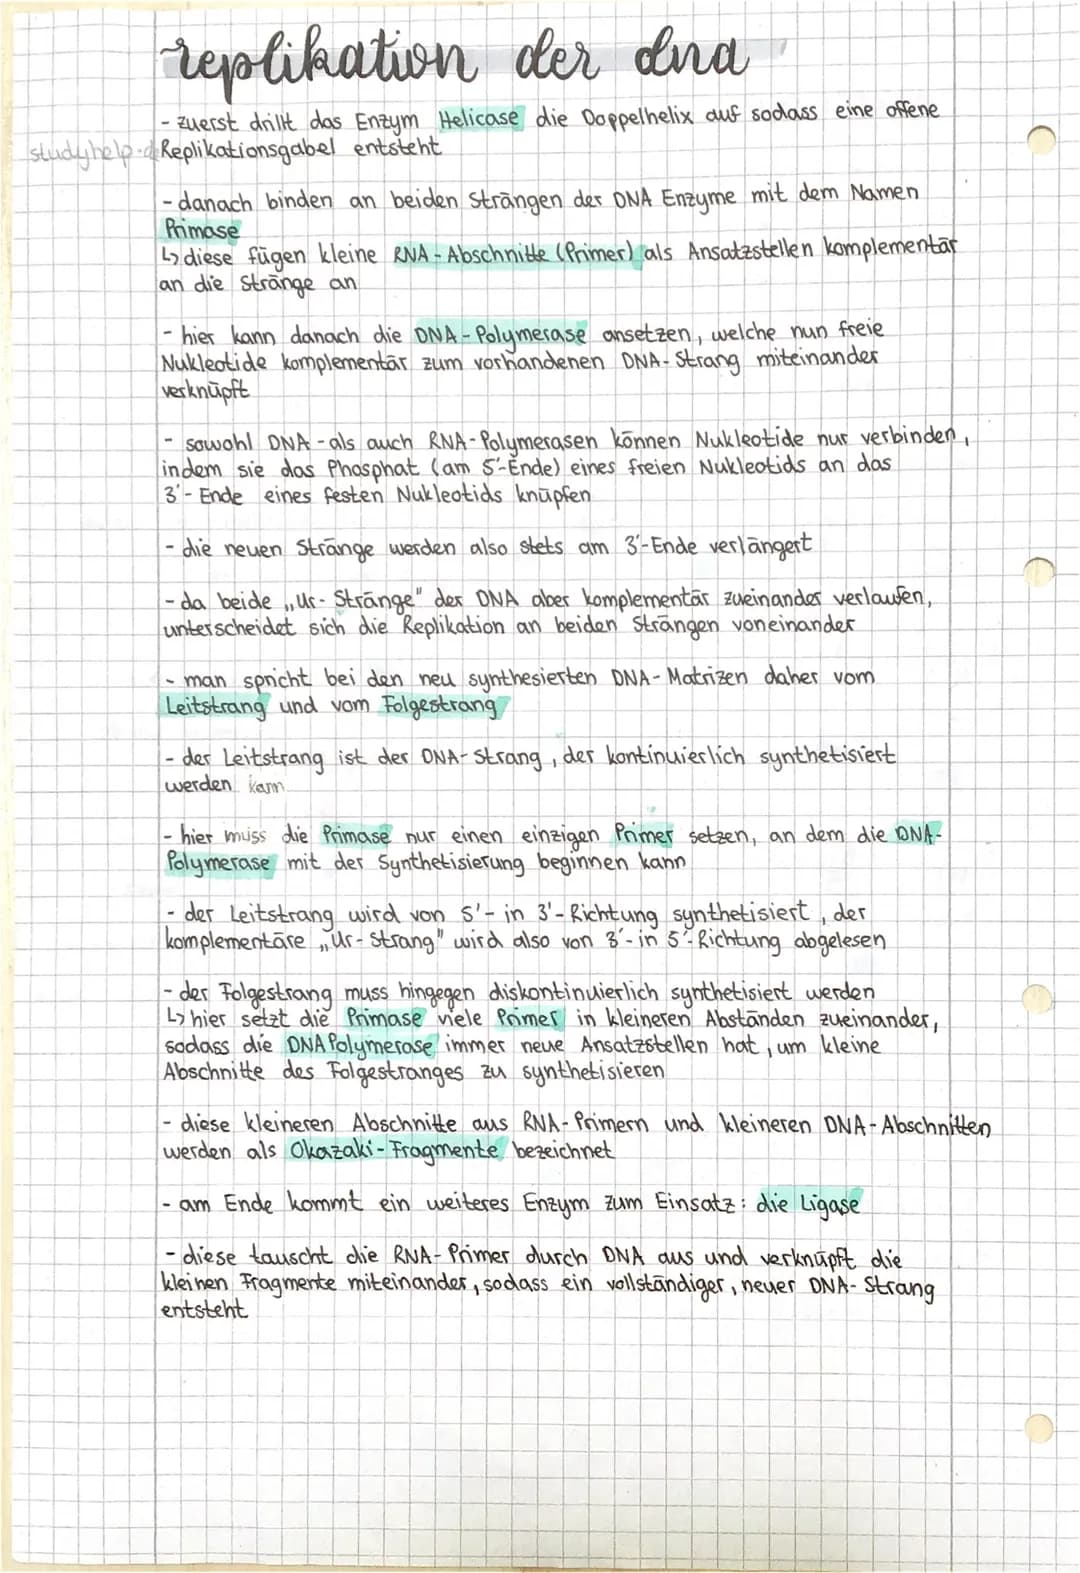 replikation der dna
- zuerst drillt das Enzym Helicase die Doppelhelix auf sodass eine offene
studyhelp.de Replikationsgabel entsteht
- danach binden an beiden Strängen der DNA Enzyme mit dem Namen
Primase
↳ diese fügen kleine RNA-Abschnitte (Primer) als Ansatzstellen komplementär
an die Stränge an
- hier kann danach die DNA-Polymerase ansetzen, welche nun freie
Nukleotide komplementär zum vorhandenen DNA-Strang miteinander
verknüpft
- sowohl DNA-als auch RNA-Polymerasen können Nukleotide nur verbinden,
indem sie das Phosphat (am 5'-Ende) eines freien Nukleotids an das
3'-Ende eines festen Nukleotids knüpfen
- die neuen Stränge werden also stets am 3'-Ende verlängert
- da beide „Ur-Stränge" der DNA aber komplementär zueinander verlaufen,
unterscheidet sich die Replikation an beiden Strängen voneinander
- man spricht bei den neu synthesierten DNA-Matrizen daher vom
Leitstrang und vom Folgestrang
- der Leitstrang ist der DNA-Strang, der kontinuierlich synthetisiert
werden kann
- hier muss die Primase nur einen einzigen Primer setzen, an dem die DNA-
Polymerase mit der Synthetisierung beginnen kann
- der Leitstrang wird von 5'- in 3'-Richtung synthetisiert, der
komplementäre „Ur-Strang" wird also von 3'-in 5'-Richtung abgelesen
- der Folgestrang muss hingegen diskontinuierlich synthetisiert werden
↳ hier setzt die Primase viele Primer in kleineren Abständen zueinander,
sodass die DNA Polymerase immer neue Ansatzstellen hat, um kleine
Abschnitte des Folgestranges zu synthetisieren
- diese kleineren Abschnitte aus RNA-Primern und kleineren DNA-Abschnitten
werden als Okazaki-Fragmente bezeichnet
- am Ende kommt ein weiteres Enzym zum Einsatz: die Ligase
- diese tauscht die RNA-Primer durch DNA aus und verknüpft die
kleinen Fragmente miteinander, sodass ein vollständiger, neuer DNA-Strang
entsteht